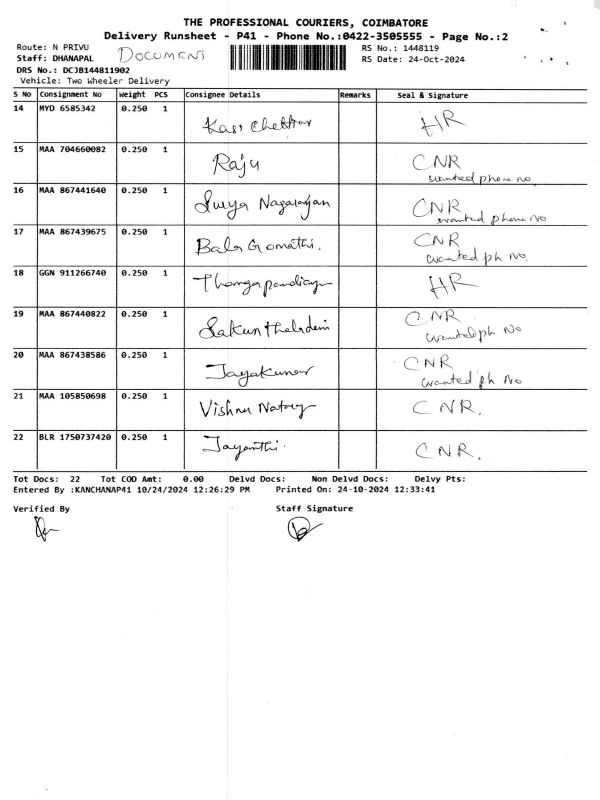 THE PROFESSIONAL COURIERS, COIMBATORE
Delivery Runsheet - P41 - Phone No.:0422-3505555 - Page No.:2
Route: N PRIVU
RS No.: 1448119
Staff: DHANAPAL
DOCUMENT
RS Date: 24-Oct-2024
DRS No.: DCJB144811902
Vehicle: Two Wheeler Delivery
S No Consignment No Weight PCS Consignee Details Remarks Seal & Signature
14 MYD 6585342 0.250 1 HR
15 MAA 704660082 0.250 1 Raju CNR
wanted phone no
16 MAA 867441640 0.250 1 Surya Nagarajan CNR
wanted phone No
17 MAA 867439675 0.250 1 Bala Gomathi. CNR
wanted ph No.
18 GGN 911266740 0.250 1 Thangapandiayan HR
19 MAA 867440822 0.250 1 Sakunthaladevi CNR
wanted ph No
20 MAA 867438586 0.250 1 Jayakumar CNR
wanted ph No
21 MAA 105850698 0.250 1 Vishnu CNR.
22 BLR 1750737420 0.250 1 Jayanthi. CNR.
Tot Docs: 22 Tot COD Amt: 0.00 Delvd Docs: Non Delvd Docs: Delvy Pts:
Entered By :KANCHANAP41 10/24/2024 12:26:29 PM Printed On: 24-10-2024 12:33:41
Verified By Staff Signature